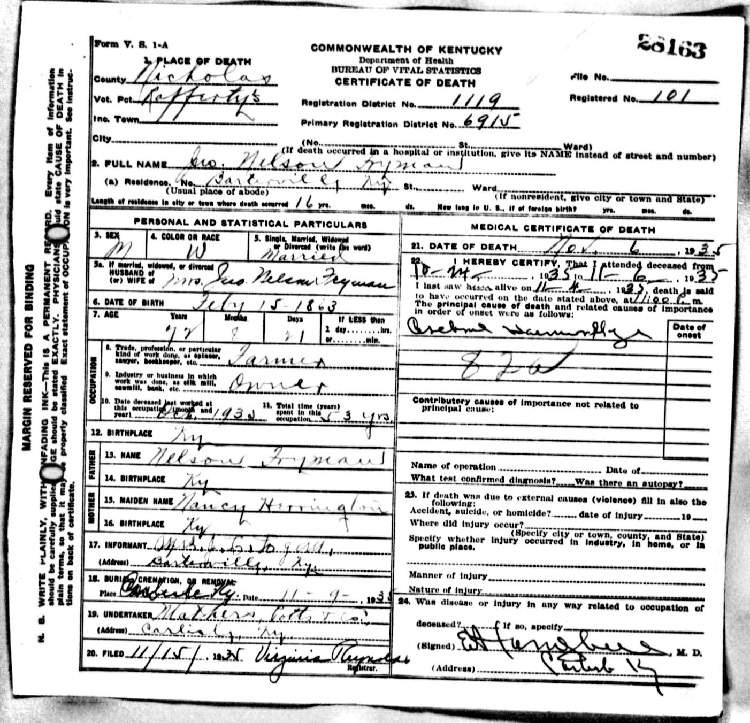 Form V. S. 1-A
COMMONWEALTH OF KENTUCKY
Department of Health
BUREAU OF VITAL STATISTICS
CERTIFICATE OF DEATH
28163
1. PLACE OF DEATH
County Nicholas
Vot. Pct. Rafferty's
Inc. Town
City
Registration District No. 1119
Primary Registration District No. 6915
File No.
Registered No. 101
(No. St. Ward)
(If death occurred in a hospital or institution, give its NAME instead of street and number)
2. FULL NAME Geo. Nelson Fryman
(a) Residence. No. Barterville, Ky St. Ward
(Usual place of abode) (If nonresident, give city or town and State)
Length of residence in city or town where death occurred 16 yrs. mos. ds. How long in U. S., if of foreign birth? yrs. mos. ds.
PERSONAL AND STATISTICAL PARTICULARS
3. SEX M
4. COLOR OR RACE W
5. Single, Married, Widowed or Divorced (write the word) Married
5a. If married, widowed, or divorced
HUSBAND of
(or) WIFE of Mrs. Geo. Nelson Fryman
6. DATE OF BIRTH Feby 15-1863
7. AGE Years 72 Months 8 Days 21 If LESS than 1 day, hrs. or min.
OCCUPATION
8. Trade, profession, or particular kind of work done, as spinner, sawyer, bookkeeper, etc. Farmer
9. Industry or business in which work was done, as silk mill, sawmill, bank, etc. Owner
10. Date deceased last worked at this occupation (month and year) Oct. 1935
11. Total time (years) spent in this occupation 53 yrs
12. BIRTHPLACE Ky
FATHER
13. NAME Nelson Fryman
14. BIRTHPLACE Ky
MOTHER
15. MAIDEN NAME Nancy Herrington
16. BIRTHPLACE Ky
17. INFORMANT Mrs.
(Address) Barterville, Ky.
18. BURIAL, CREMATION, OR REMOVAL
Place Carlisle Ky. Date 11-9-1935
19. UNDERTAKER Mathers, Potts & Co.
(Address) Carlisle, Ky
20. FILED 11/15/1935 Virginia Reynolds
Registrar.
MEDICAL CERTIFICATE OF DEATH
21. DATE OF DEATH Nov. 6, 1935
22. I HEREBY CERTIFY, That I attended deceased from
1935 to 11-6, 1935
I last saw him alive on 11-4, 1935, death is said
to have occurred on the date stated above, at 11:00 P. m.
The principal cause of death and related causes of importance in order of onset were as follows:
Date of onset
Cerebral Haemorrhage
82a
Contributory causes of importance not related to principal cause:
Name of operation Date of
What test confirmed diagnosis? Was there an autopsy?
23. If death was due to external causes (violence) fill in also the following:
Accident, suicide, or homicide? date of injury 19
Where did injury occur?
(Specify city or town, county, and State)
Specify whether injury occurred in industry, in home, or in public place.
Manner of injury
Nature of injury
24. Was disease or injury in any way related to occupation of
deceased? If so, specify
(Signed) M. D.
(Address) Carlisle Ky
MARGIN RESERVED FOR BINDING